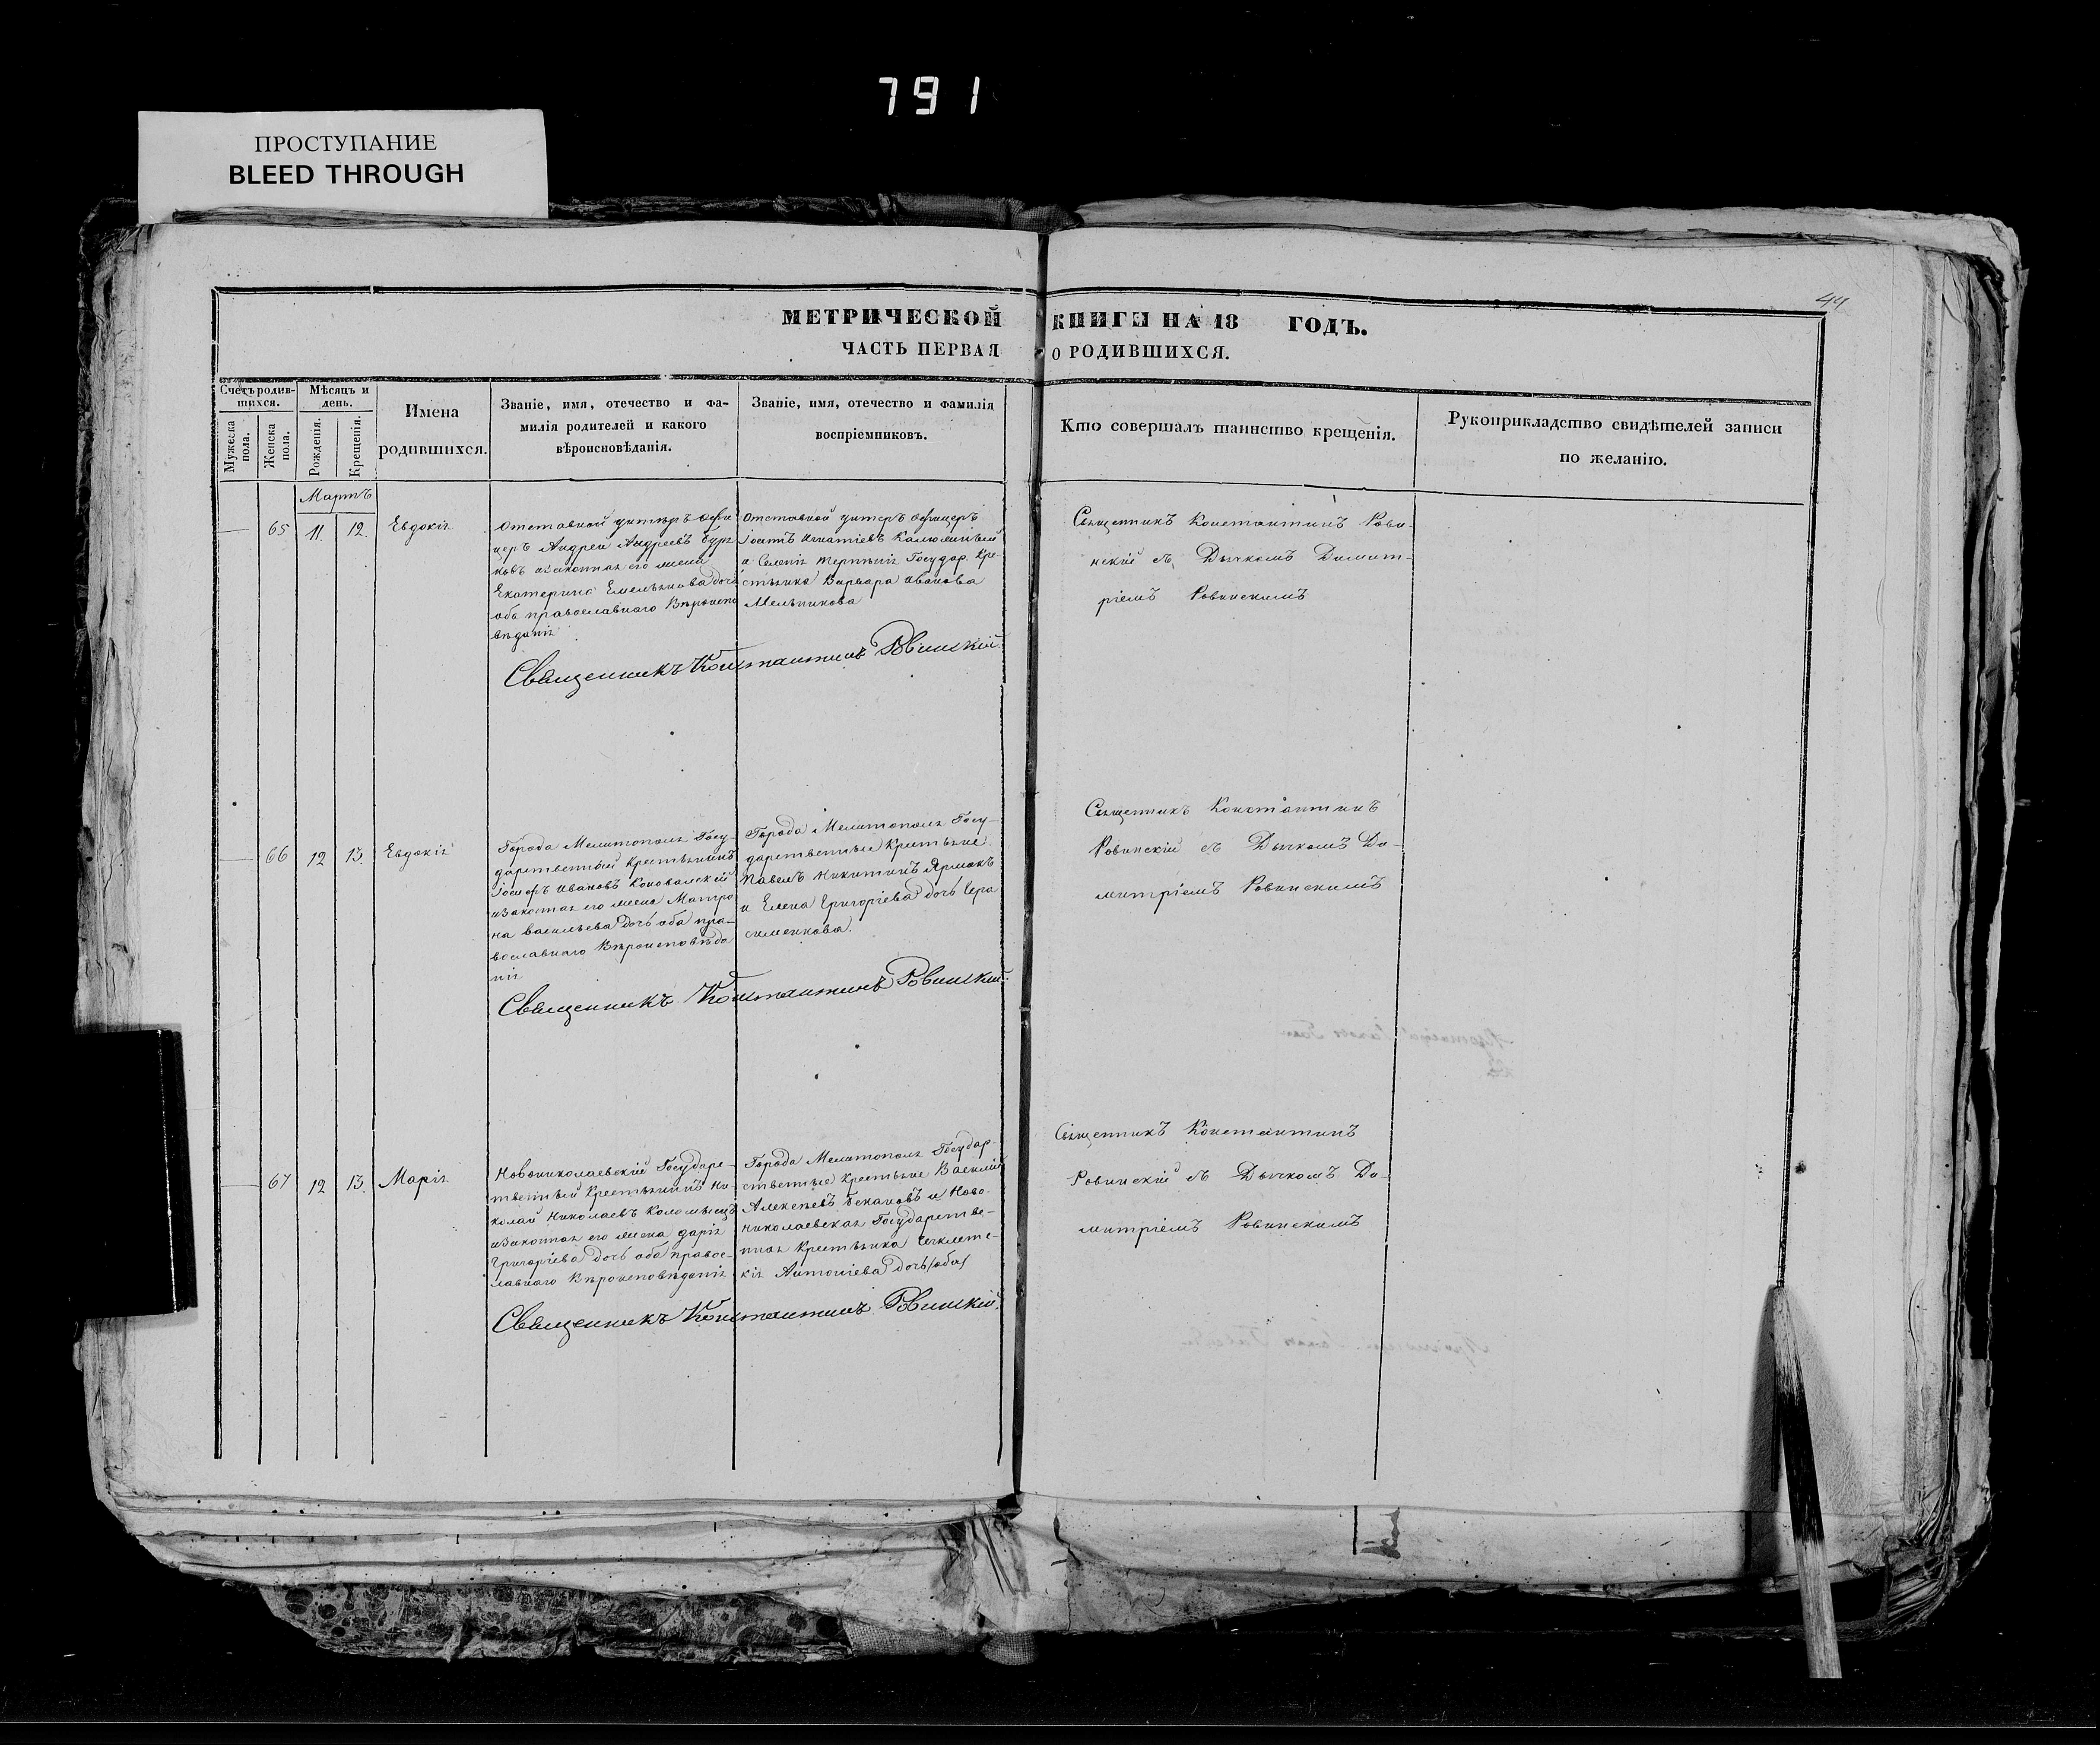 791
ПРОСТУПАНИЕ
BLEED THROUGH
44
МЕТРИЧЕСКОЙ КНИГИ НА 18 ГОДЪ.
ЧАСТЬ ПЕРВАЯ О РОДИВШИХСЯ.
Счетъ родив-
шихся.
Мужеска
пола.
Женска
пола.
Мѣсяцъ и
день.
Рожденія.
Крещенія.
Имена
родившихся.
Званіе, имя, отечество и фа-
милія родителей и какого
вѣроисповѣданія.
Званіе, имя, отечество и фамилія
воспріемниковъ.
Кто совершалъ таинство крещенія.
Рукоприкладство свидѣтелей записи
по желанію.
Мартъ
65 11. 12. Евдокія
Отставной унтеръ офи
церъ Андрей Андреевъ
ковъ изаконная его жена
Екатерина Емельянова дочь
оба православнаго Вѣроиспо
вѣданія
Отставной унтеръ офицеръ
Іоаннъ Игнатіевъ
и Государ. Кре-
стьянка Варвара Иванова
Мельникова
Священникъ Константинъ Рови-
нскій съ Дьячкомъ Димит-
ріемъ Ровинскимъ
Священникъ Константинъ Ровинскій.
66 12 13. Евдокія
Города Мелитополя Госу-
дарственный Крестьянинъ
Іосифъ Ивановъ Коновалскій
изаконная его жена Матро
на Васильева дочь оба пра-
вославнаго Вѣроисповѣда
нія
Города Мелитополя Госу-
дарственные Крестьяне
Павелъ Никитинъ Ярмакъ
и Елена Григоріева дочь Гера
сименкова.
Священникъ Константинъ
Ровинскій съ Дьячкомъ Ди-
митріемъ Ровинскимъ
Священникъ Константинъ Ровинскій.
67 12 13. Марія
Новониколаевскій Государс-
твенный Крестьянинъ Ни
колай Николаевъ Коломыецъ
изаконная его жена Дарія
Григоріева дочь оба правос-
лавнаго Вѣроисповѣданія
Города Мелитополя Государ-
ственные Крестьяне Василій
Алексѣевъ и Ново-
николаевская Государстве-
нная Крестьянка
кія Антоніева дочь
Священникъ Константинъ
Ровинскій съ Дьячкомъ Ди-
митріемъ Ровинскимъ
Священникъ Константинъ Ровинскій.